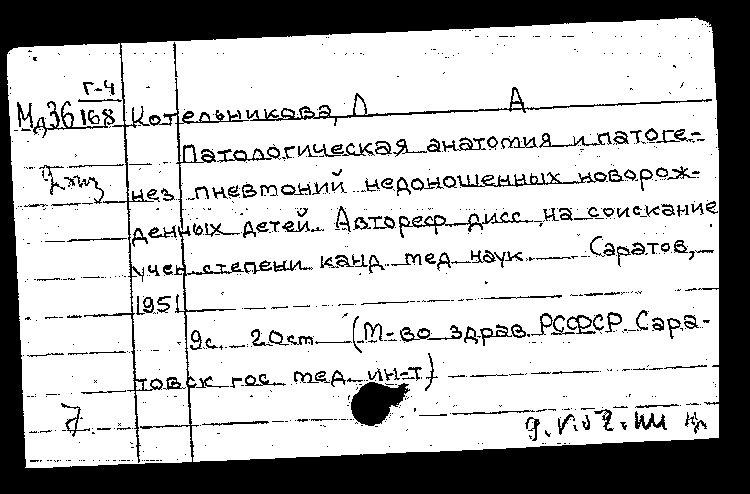 Г-4
Мд36 168 Котельникова, Л А
Патологическая анатомия и патоге-
2 экз нез пневмоний недоношенных новорож-
денных детей. Автореф дисс на соискание
учен степени канд мед наук Саратов,
1951
9с. 20см (М-во здрав РСФСР Сара-
товск гос мед ин-т)